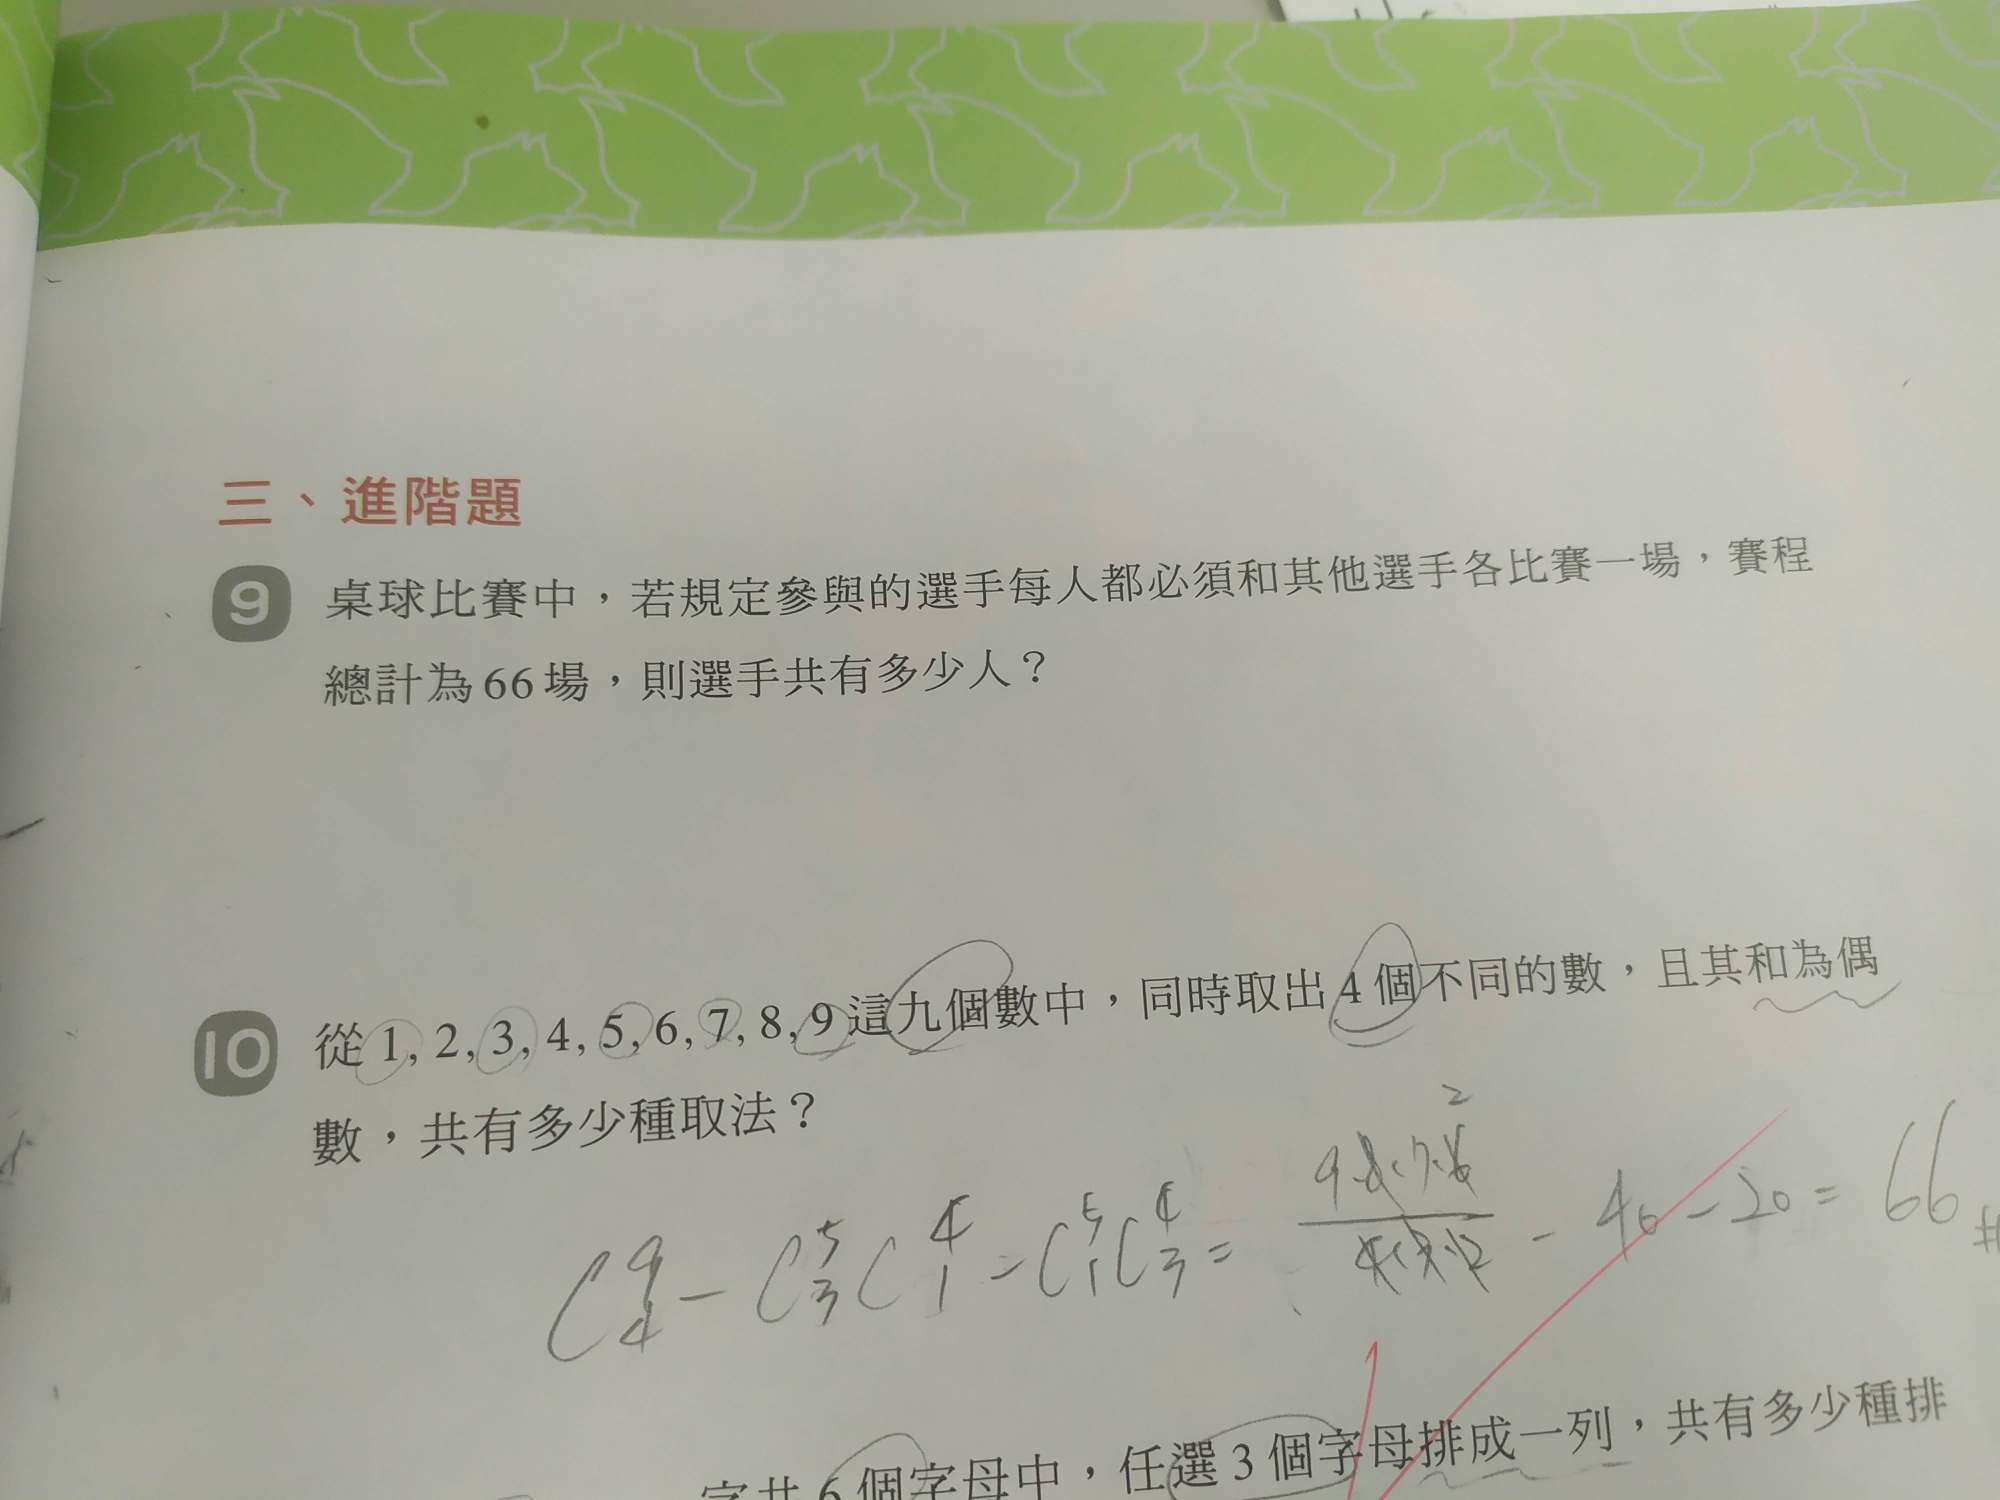 三、進階題
9 桌球比賽中，若規定參與的選手每人都必須和其他選手各比賽一場，賽程
總計為66場，則選手共有多少人？
10 從1, 2, 3, 4, 5, 6, 7, 8, 9這九個數中，同時取出4個不同的數，且其和為偶
數，共有多少種取法？
C⁹₄ - C⁵₃C⁴₁ - C⁵₁C⁴₃ = 9·8·7·6 / 4·3·2 - 40 - 20 = 66 #
字共6個字母中，任選3個字母排成一列，共有多少種排